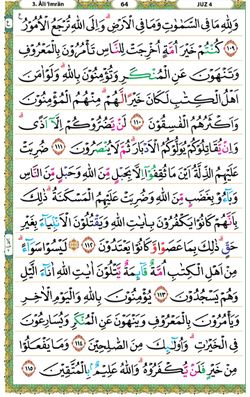 3. Āli 'Imrān 64 JUZ 4
وَلِلّٰهِ مَا فِى السَّمٰوٰتِ وَمَا فِى الْاَرْضِ ۗ وَاِلَى اللّٰهِ تُرْجَعُ الْاُمُوْرُ
١٠٩ كُنْتُمْ خَيْرَ اُمَّةٍ اُخْرِجَتْ لِلنَّاسِ تَأْمُرُوْنَ بِالْمَعْرُوْفِ
وَتَنْهَوْنَ عَنِ الْمُنْكَرِ وَتُؤْمِنُوْنَ بِاللّٰهِ ۗ وَلَوْ اٰمَنَ
اَهْلُ الْكِتٰبِ لَكَانَ خَيْرًا لَّهُمْ ۗ مِنْهُمُ الْمُؤْمِنُوْنَ
وَاَكْثَرُهُمُ الْفٰسِقُوْنَ ١١٠ لَنْ يَّضُرُّوْكُمْ اِلَّآ اَذًى ۗ
وَاِنْ يُّقَاتِلُوْكُمْ يُوَلُّوْكُمُ الْاَدْبَارَ ۗ ثُمَّ لَا يُنْصَرُوْنَ ١١١ ضُرِبَتْ
عَلَيْهِمُ الذِّلَّةُ اَيْنَ مَا ثُقِفُوْٓا اِلَّا بِحَبْلٍ مِّنَ اللّٰهِ وَحَبْلٍ مِّنَ النَّاسِ
وَبَآءُوْ بِغَضَبٍ مِّنَ اللّٰهِ وَضُرِبَتْ عَلَيْهِمُ الْمَسْكَنَةُ ۗ ذٰلِكَ
بِاَنَّهُمْ كَانُوْا يَكْفُرُوْنَ بِاٰيٰتِ اللّٰهِ وَيَقْتُلُوْنَ الْاَنْۢبِيَآءَ بِغَيْرِ
حَقٍّ ۗ ذٰلِكَ بِمَا عَصَوْا وَّكَانُوْا يَعْتَدُوْنَ ١١٢ لَيْسُوْا سَوَآءً ۗ
مِنْ اَهْلِ الْكِتٰبِ اُمَّةٌ قَآئِمَةٌ يَّتْلُوْنَ اٰيٰتِ اللّٰهِ اٰنَآءَ الَّيْلِ
وَهُمْ يَسْجُدُوْنَ ١١٣ يُؤْمِنُوْنَ بِاللّٰهِ وَالْيَوْمِ الْاٰخِرِ
وَيَأْمُرُوْنَ بِالْمَعْرُوْفِ وَيَنْهَوْنَ عَنِ الْمُنْكَرِ وَيُسَارِعُوْنَ
فِى الْخَيْرٰتِ ۗ وَاُولٰٓئِكَ مِنَ الصّٰلِحِيْنَ ١١٤ وَمَا يَفْعَلُوْا
مِنْ خَيْرٍ فَلَنْ يُّكْفَرُوْهُ ۗ وَاللّٰهُ عَلِيْمٌۢ بِالْمُتَّقِيْنَ ١١٥